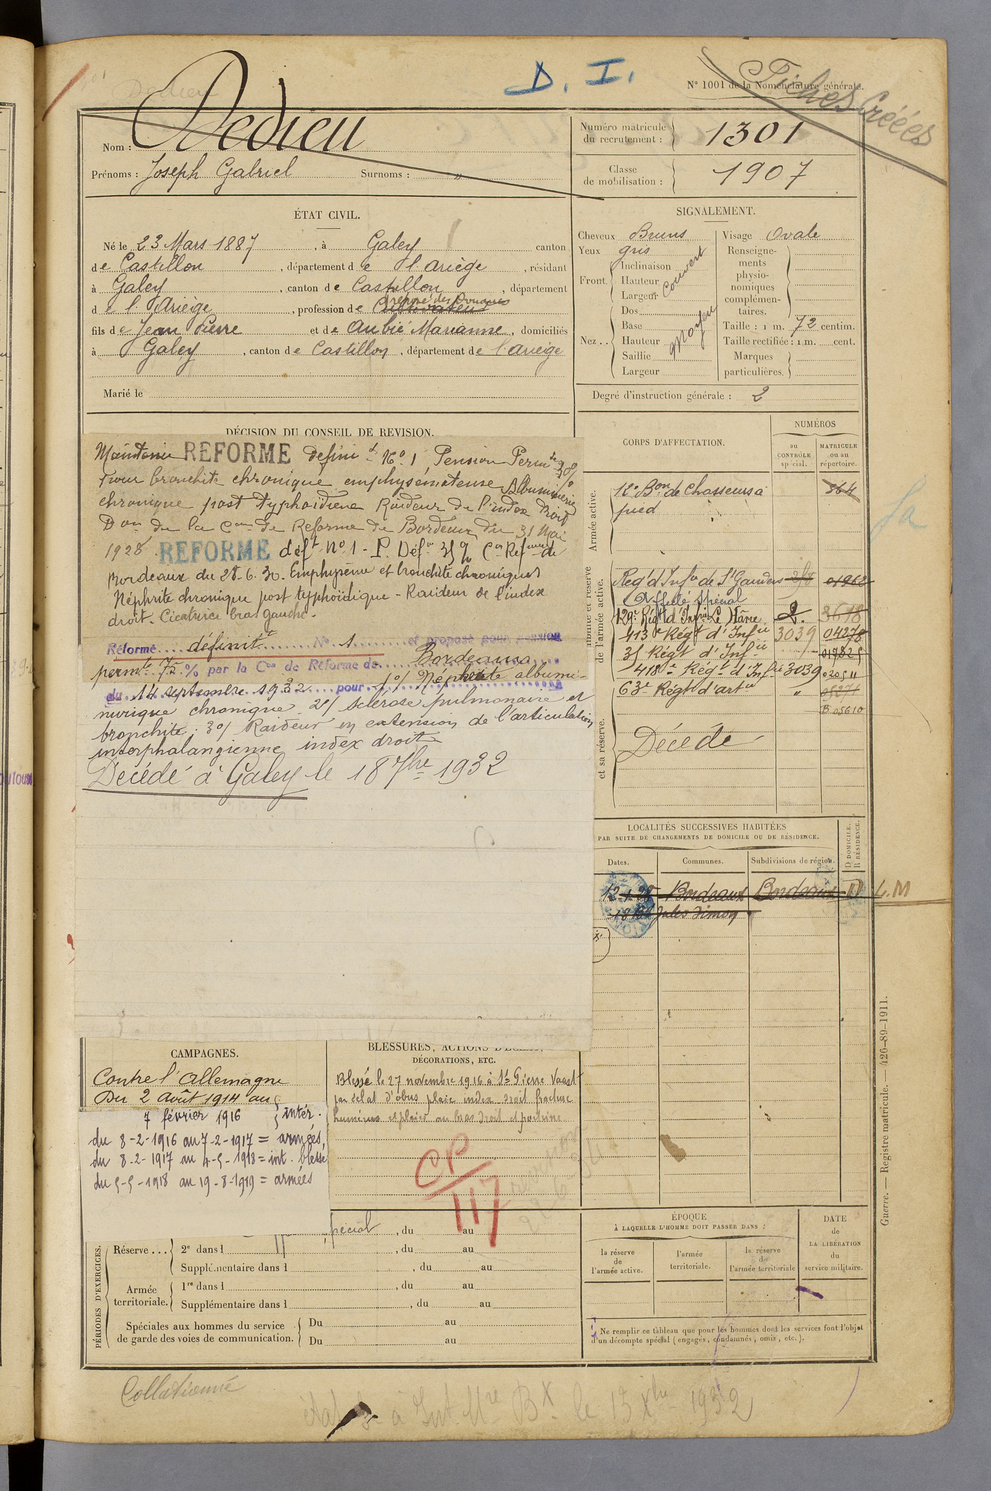 D. I.
N° 1001 de la Nomenclature générale.
Fiches Créées
Nom : Dedieu
Prénoms : Joseph Gabriel Surnoms : "
Numéro matricule du recrutement : 1301
Classe de mobilisation : 1907
ÉTAT CIVIL.
Né le 23 Mars 1887, à Galey canton
de Castillon, département de l'Ariège, résidant
à Galey, canton de Castillon, département
préposé des Douanes
de l'Ariège, profession de Cultivateur
fils de Jean Pierre et de Aubié Marianne, domiciliés
à Galey, canton de Castillon, département de l'Ariège
Marié le
SIGNALEMENT.
Cheveux Bruns
Yeux gris
Front Inclinaison Hauteur Largeur Couvert
Nez Dos Base Hauteur Saillie Largeur Moyen
Visage Ovale
Renseignements physionomiques complémentaires.
Taille : 1 m. 72 centim.
Taille rectifiée : 1 m. cent.
Marques particulières.
Degré d'instruction générale : 2
DÉCISION DU CONSEIL DE REVISION.
Maintenu REFORME définit. N° 1, Pension Perm.te 30%
Pour bronchite chronique emphysémateuse Albuminurie
chronique post typhoïdienne Raideur de l'index droit
Don de la Con de Réforme de Bordeaux du 31 Mai
1928. REFORME déft n° 1 - P. Défve 35% Con Réfme de
Bordeaux du 28.6.30. Emphysème et bronchite chroniques
Néphrite chronique post typhoïdique - Raideur de l'index
droit. Cicatrice bras gauche.
Réformé définitt N° 1 et proposé pour pension
permte 75% par la Con de Réforme de Bordeaux
du 14 septembre 1932 pour 1°/ Néphrite albumi-
nurique chronique 2°/ sclérose pulmonaire et
bronchite ; 3°/ Raideur en extension de l'articulation
interphalangienne index droit
Décédé à Galey le 18 7bre 1932
CORPS D'AFFECTATION.
NUMÉROS
au CONTRÔLE spécial.
MATRICULE ou au répertoire.
Armée active.
Bon de Chasseurs à pied 364
Régt d'Infie de St Gaudens
Affecté Spécial
129e Régt d'Infie Le Hâvre 3618
413e Régt d'Infie 3039 04278
Régt d'Infie
418e Régt d'Infie 3039
63e Régt d'artie "
B 05610
et sa réserve.
Décédé
LOCALITÉS SUCCESSIVES HABITÉES
PAR SUITE DE CHANGEMENTS DE DOMICILE OU DE RÉSIDENCE.
Dates. Communes. Subdivisions de région. D DOMICILE. R RÉSIDENCE.
Bordeaux Bordeaux D L.M
Jules Simon
CAMPAGNES.
Contre l'Allemagne
Du 2 Août 1914 au
7 février 1916 } intér.
du 8-2-1916 au 7-2-1917 = armées,
du 8-2-1917 au 4-5-1918 = int. blessé
du 5-5-1918 au 19-8-1919 = armées
BLESSURES, ACTIONS D'ÉCLAT,
DÉCORATIONS, ETC.
Blessé le 27 novembre 1916 à St Pierre Vaast
par éclat d'obus plaie index droit fracture
humérus et plaies au bras droit et poitrine.
CP
117
PÉRIODES D'EXERCICES.
spécial, du au
Réserve 2e dans l , du au
Supplémentaire dans l , du au
Armée territoriale. 1re dans l , du au
Supplémentaire dans l , du au
Spéciales aux hommes du service de garde des voies de communication.
Du au
Du au
ÉPOQUE
À LAQUELLE L'HOMME DOIT PASSER DANS :
la réserve de l'armée active.
l'armée territoriale.
la réserve de l'armée territoriale
DATE de LA LIBÉRATION du service militaire.
Ne remplir ce tableau que pour les hommes dont les services font l'objet
d'un décompte spécial (engagés, condamnés, omis, etc.).
Guerre. — Registre matricule. — 426-89-1911.
Collationné